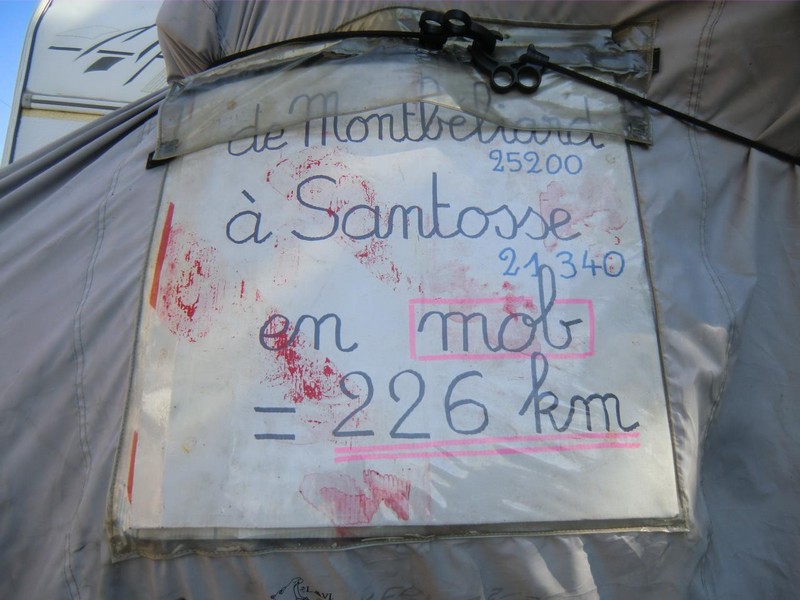 de Montbéliard
25200
à Santosse
21340
en mob
= 226 km